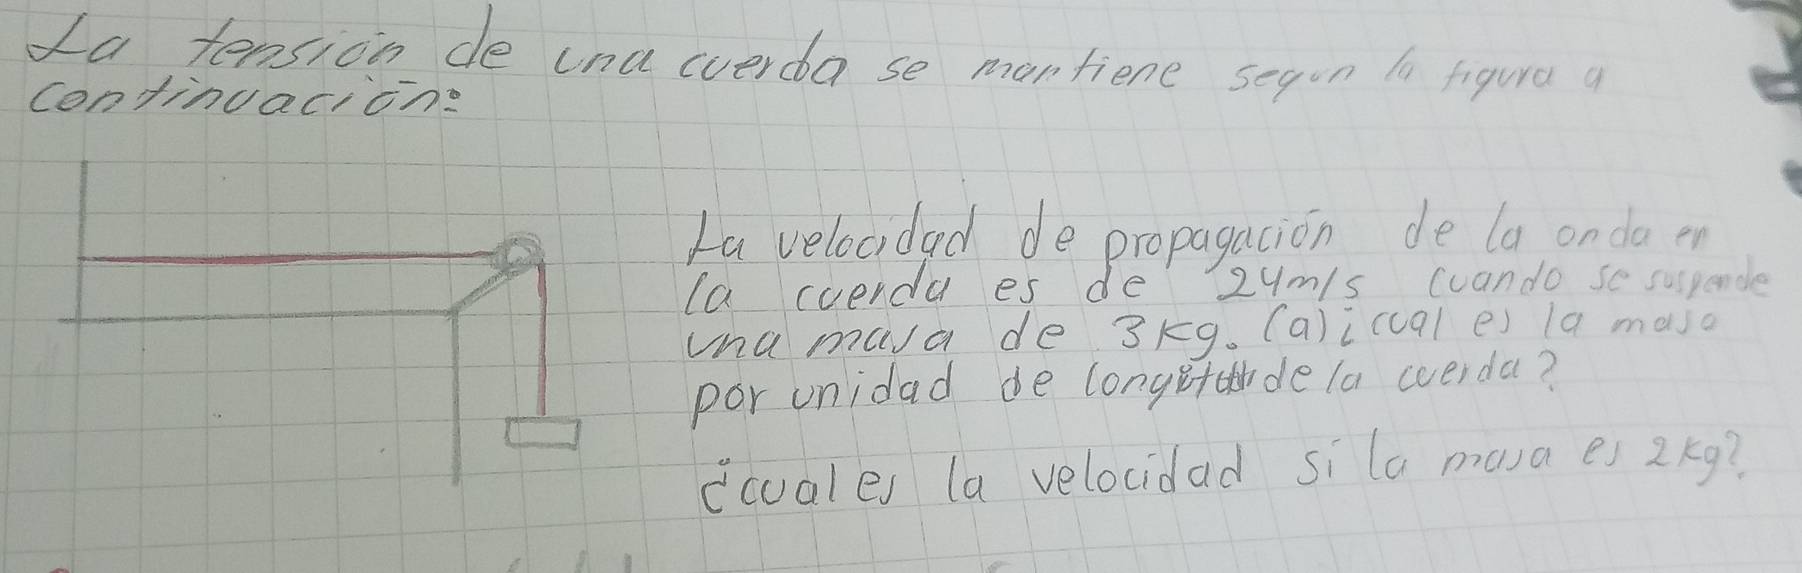 La tensión de una cuerda se mantiene segun la figura a
continuación:
La velocidad de propagación de la onda en
la cuerda es de 24m/s cuando se suspende
una masa de 3kg. (a) ¿cual es la masa
por unidad de longitud de la cuerda?
¿cual es la velocidad si la masa es 2kg?